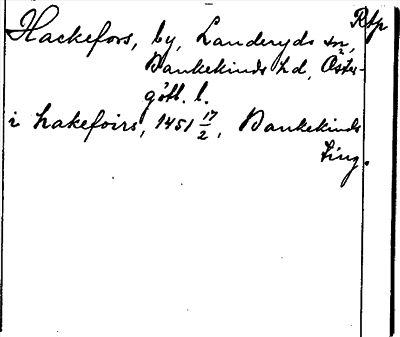 Rtp
Hackefors, by, Landeryds sn,
Bankekinds hd, Öster-
götl. l.
i hakefoirs, 1451 17/2, Bankekinds
ting.